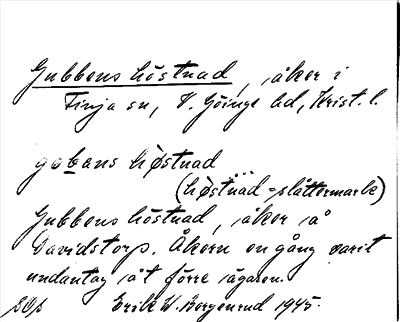 Gubbens höstnad, åker i
Finja sn, V. Göinge hd, Krist. l.
gobans høstnad
(høstnad = slåttermark)
Gubbens höstnad, åker å
Davidstorp. Åkern en gång varit
undantag åt förre ägaren.
Erik W. Borgenrud 1945.